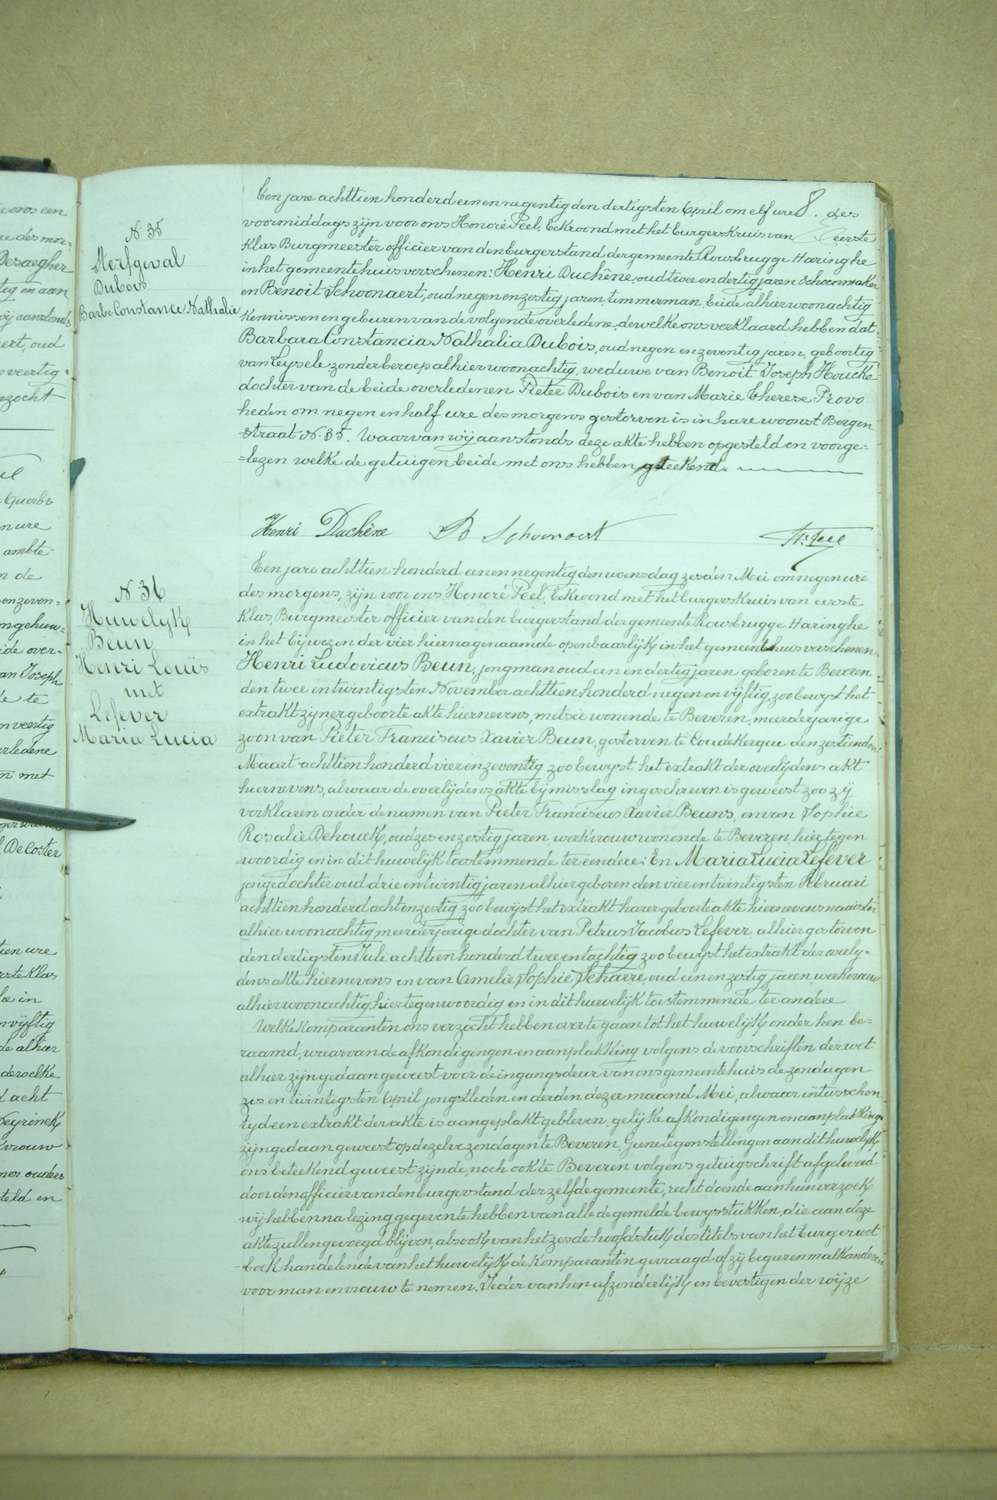 N. 35
Sterfgeval
Dubois
Barbe Constance Nathalie
Een jare achttien honderd een en negentig den dertigsten April om elf ure 8. des
voormiddags zijn voor ons Honoré Peel, bekroond met het burgerskruis van eerste
klas Burgmeester officier van den burgerstand der gemeente Rousbrugge Haringhe
in het gemeentehuis verschenen: Henri Duchêne, oud twee en dertig jaren schoenmaker
en Benoit Schoonaert, oud negen en zestig jaren timmerman beide alhier woonachtig
kennissen en geburen van de volgende overledene, dewelke ons verklaard hebben dat
Barbara Constancia Nathalia Dubois, oud negen en zeventig jaren, geboortig
van Leysele zonder beroep alhier woonachtig, weduwe van Benoit Joseph Houcke
dochter van de beide overledenen Pieter Dubois en van Marie Therese Provo
heden om negen en half ure des morgens gestorven is in hare woonst Bergen
straat N. 35. Waarvan wij aanstonds deze akte hebben opgesteld en voorge-
=lezen welke de getuigen beide met ons hebben geteekend.
Henri Duchêne B Schoonaert H. Peel
N 36
Huwelijk
Beun
Henri Louïs
met
Lefever
Maria Lucia
Een jare achttien honderd een en negentig den woensdag zesden Mei om negen ure
des morgens, zijn voor ons Honoré Peel, bekroond met het burgerskruis van eerste
klas, Burgmeester officier van den burgerstand der gemeente Rousbrugge Haringhe
in het bijwezen der vier hierna genaamde openbaarlijk in het gemeentehuis verschenen
Henri Ludovicus Beun, jongman oud een en dertig jaren geboren te Beveren
den twee en twintigsten November achttien honderd negen en vijftig, zoo bewyst het
extrakt zijner geboorte akte hiernevens, metser wonende te Beveren, meerderjarige
zoon van Pieter Franciscus Xavier Beun, gestorven te Coudekerque den zestienden
Maart achttien honderd vier en zeventig zoo bewyst het extrakt der overlijdens akt
hiernevens, alwaar de overlijdens akte bij misslag ingeschreven is geweest zoo zij
verklaren onder de namen van Pieter Franciscus Xavier Beuns, en van Sophie
Rosalie Dehouck, oud zes en zestig jaren werkvrouw wonende te Beveren hier tegen
woordig en in dit huwelijk toestemmende ter eendere; En Maria Lucia Lefever
jonge dochter oud drie en twintig jaren alhier geboren den vier en twintigsten Februari
achttien honderd acht en zestig zoo bewijst het extrakt harer geboorte akte hiernevens naaister
alhier woonachtig meerderjarige dochter van Petrus Jacobus Lefever alhier gestorven
den dertigsten Jule achttien honderd twee en tachtig zoo bewijst het extrakt der overly-
dens akte hiernevens en van Amelie Sophie Schaere, oud een en zestig jaren werkvrouw
alhier woonachtig, hier tegenwoordig en in dit huwelijk toestemmende ter andere
Welke komparanten ons verzocht hebben over te gaan tot het huwelijk onder hen be-
raamd, waarvan de afkondigingen en aanplakking volgens de voorschriften der wet
alhier zijn gedaan geweest voor de ingangsdeur van ons gemeentehuis de zondagen
zes en twintigsten April jongstleden en derden dezer maand Mei, alwaar intusschen
tijd een extrakt der akte is aangeplakt gebleven, gelijke afkondigingen en aanplakking
zijn gedaan geweest op dezelve zondagen te Beveren, Geene tegenstellingen aan dit huwelijk
ons beteekend geweest zijnde, noch ook te Beveren volgens getuigschrift afgeleverd
door den officier van den burgerstand der zelfde gemeente, recht doende aan hun verzoek
wij hebben na lezing gegeven te hebben van alle de gemelde bewysstukken, die aan deze
akte zullen gevoegd blijven, alsook van het zesde hoofdstuk des titels van het burger wet
boek handelende van het huwelijk de komparanten gevraagd of zij begeren malkanderen
voor man en vrouw te nemen. Ieder van hen afzonderlijk en bevestigender wijze